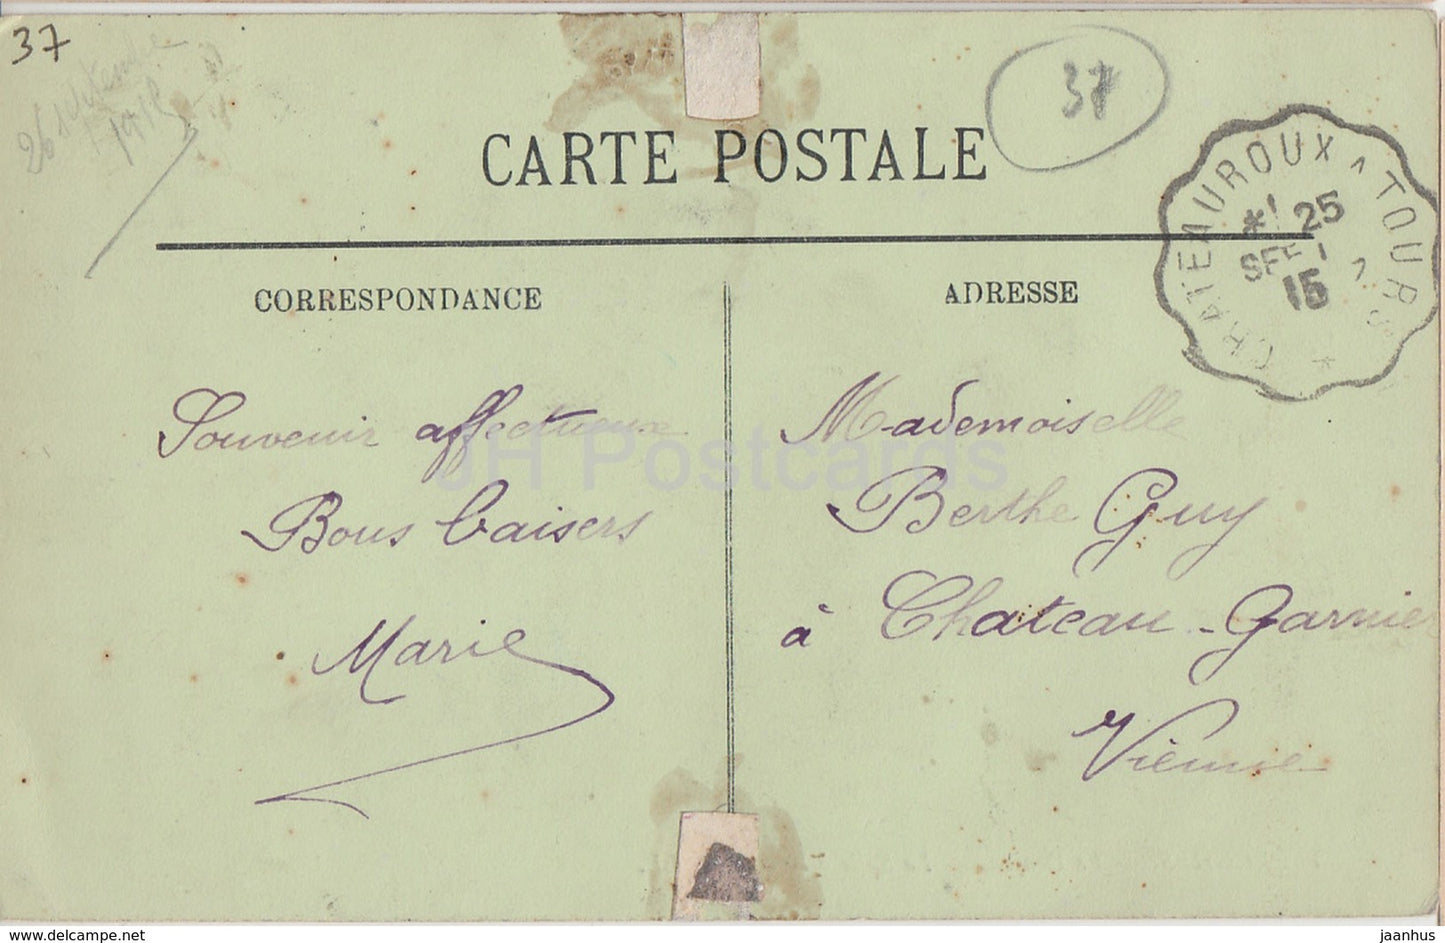 37
26 septembre
1915
37
CARTE POSTALE
CHATEAUROUX A TOURS
25
SEPT
15
CORRESPONDANCE
ADRESSE
Souvenir affectueux
Bons baisers
Marie
Mademoiselle
Berthe Guy
à Chateau-Garnier
Vienne
JH Postcards
https://www.delcampe.net
jaanhus